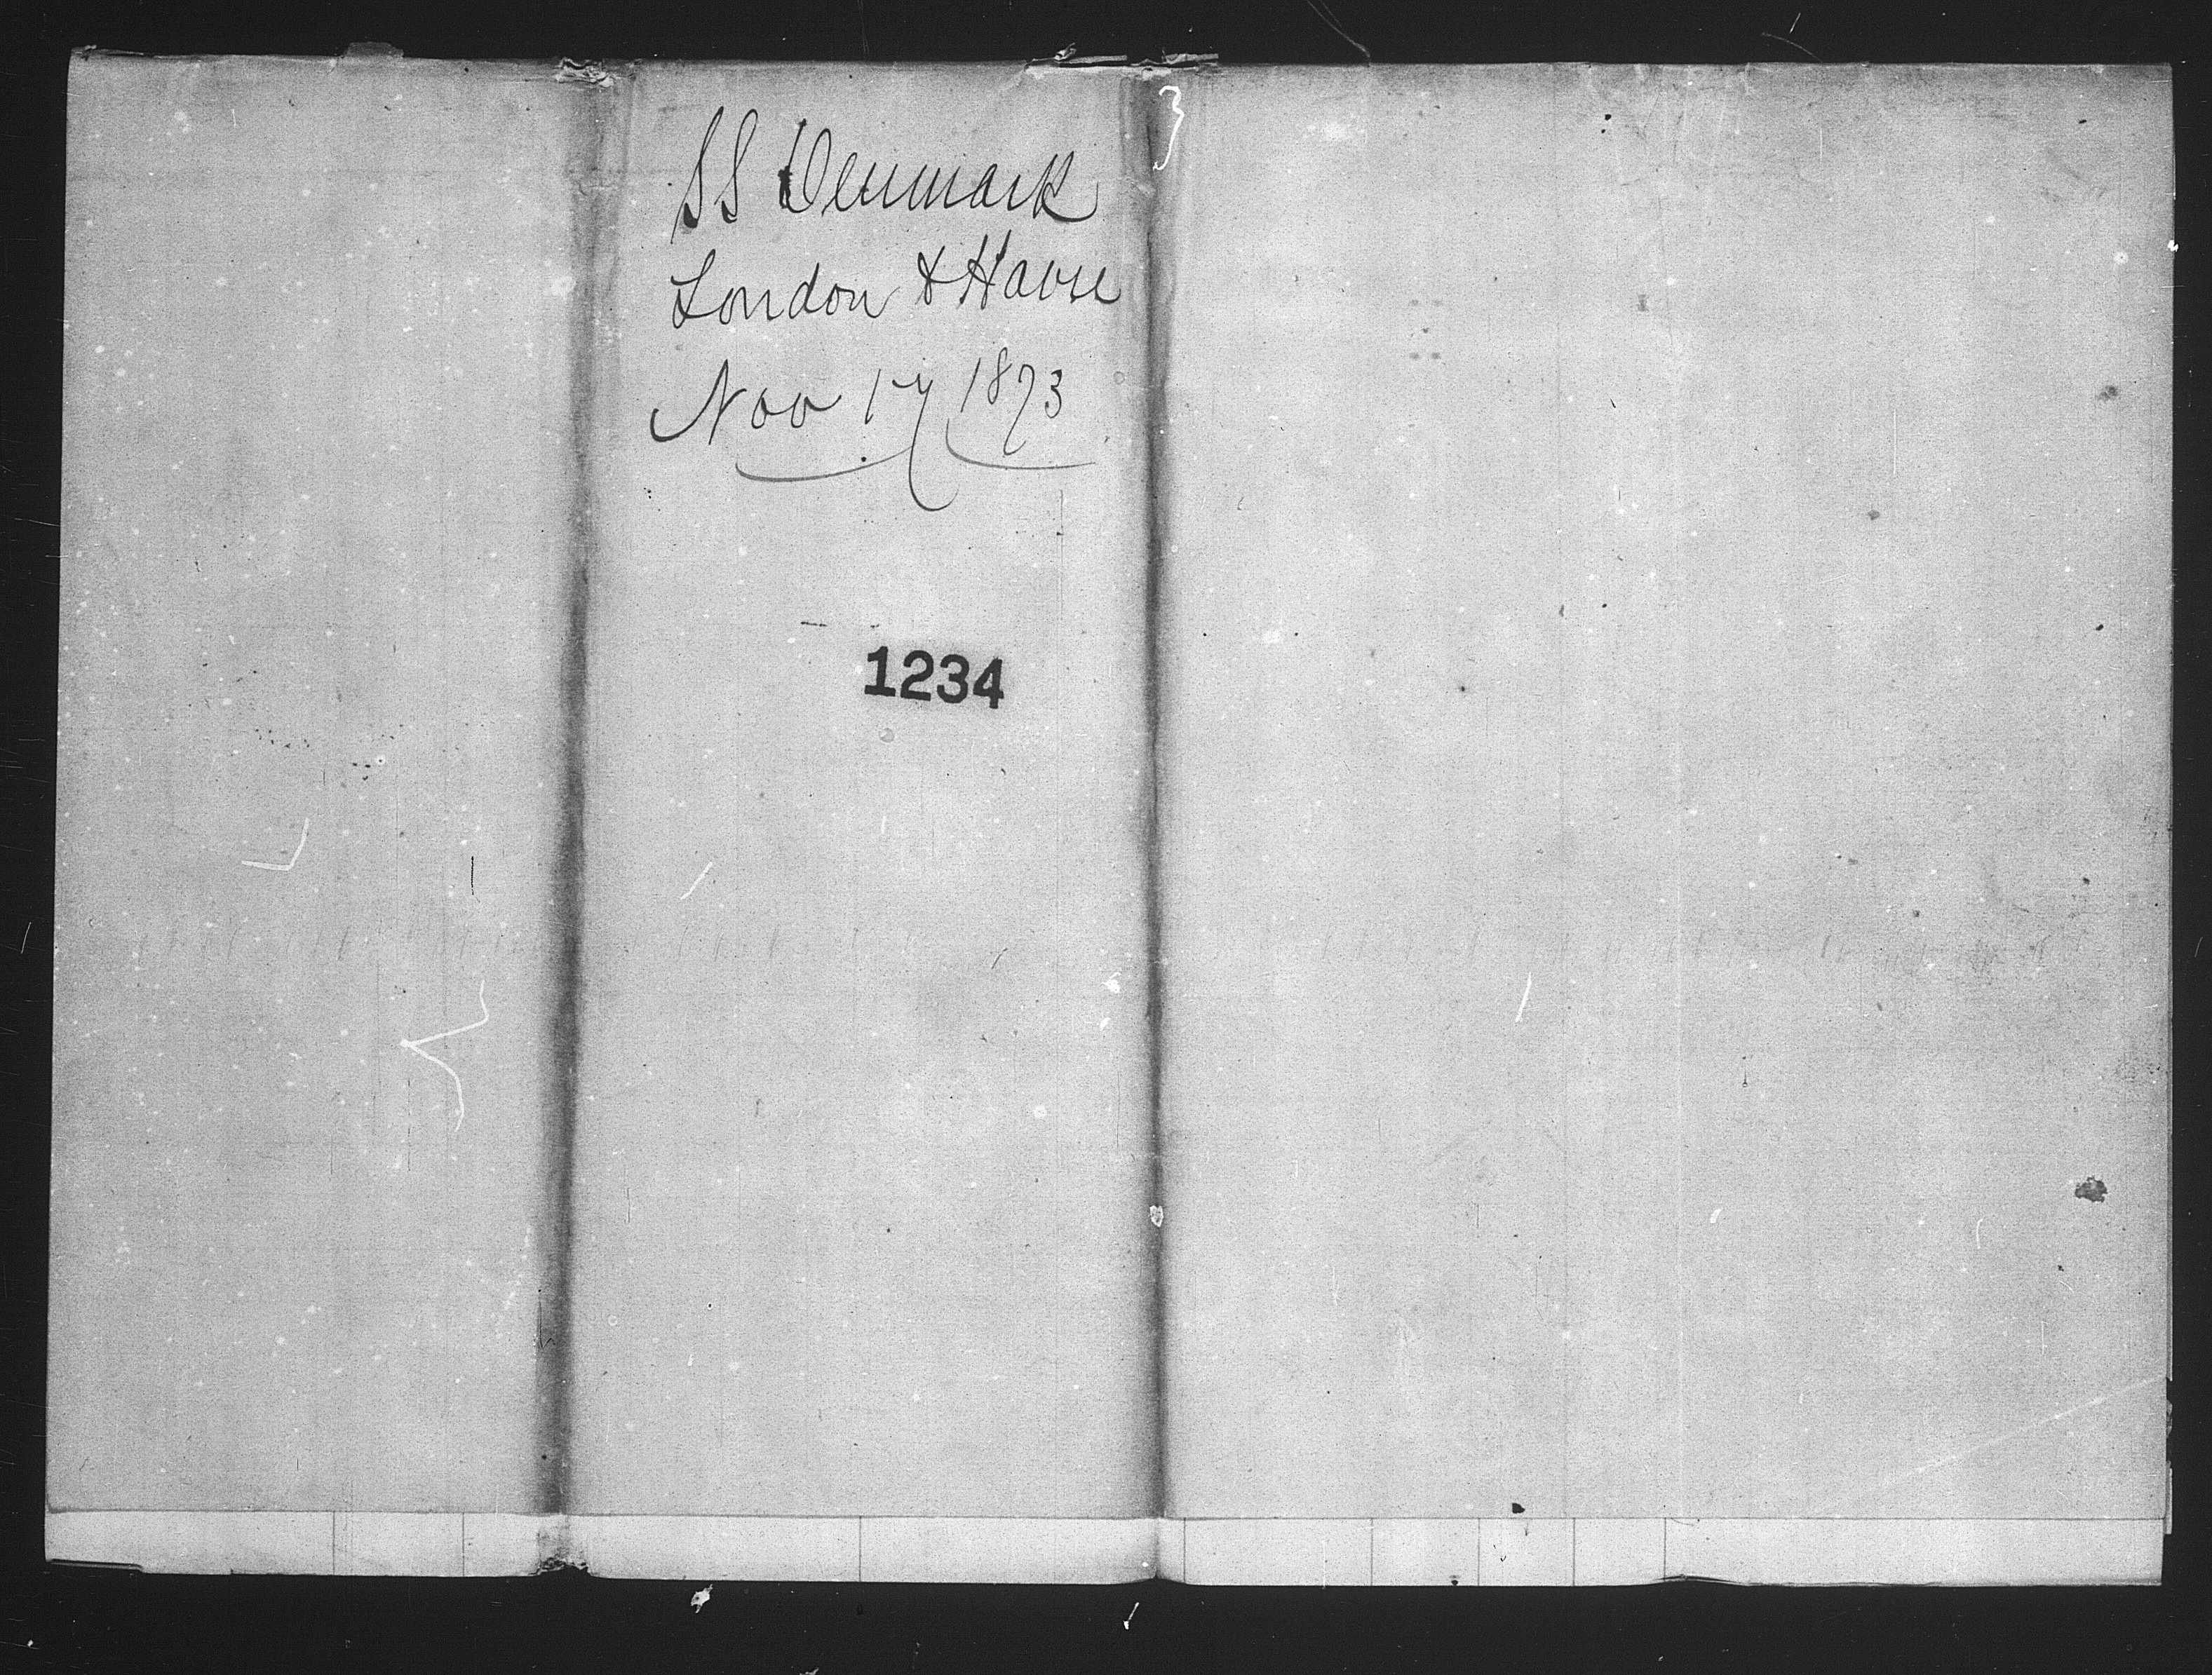 SS Denmark
London & Havre
Nov 17 1873
1234